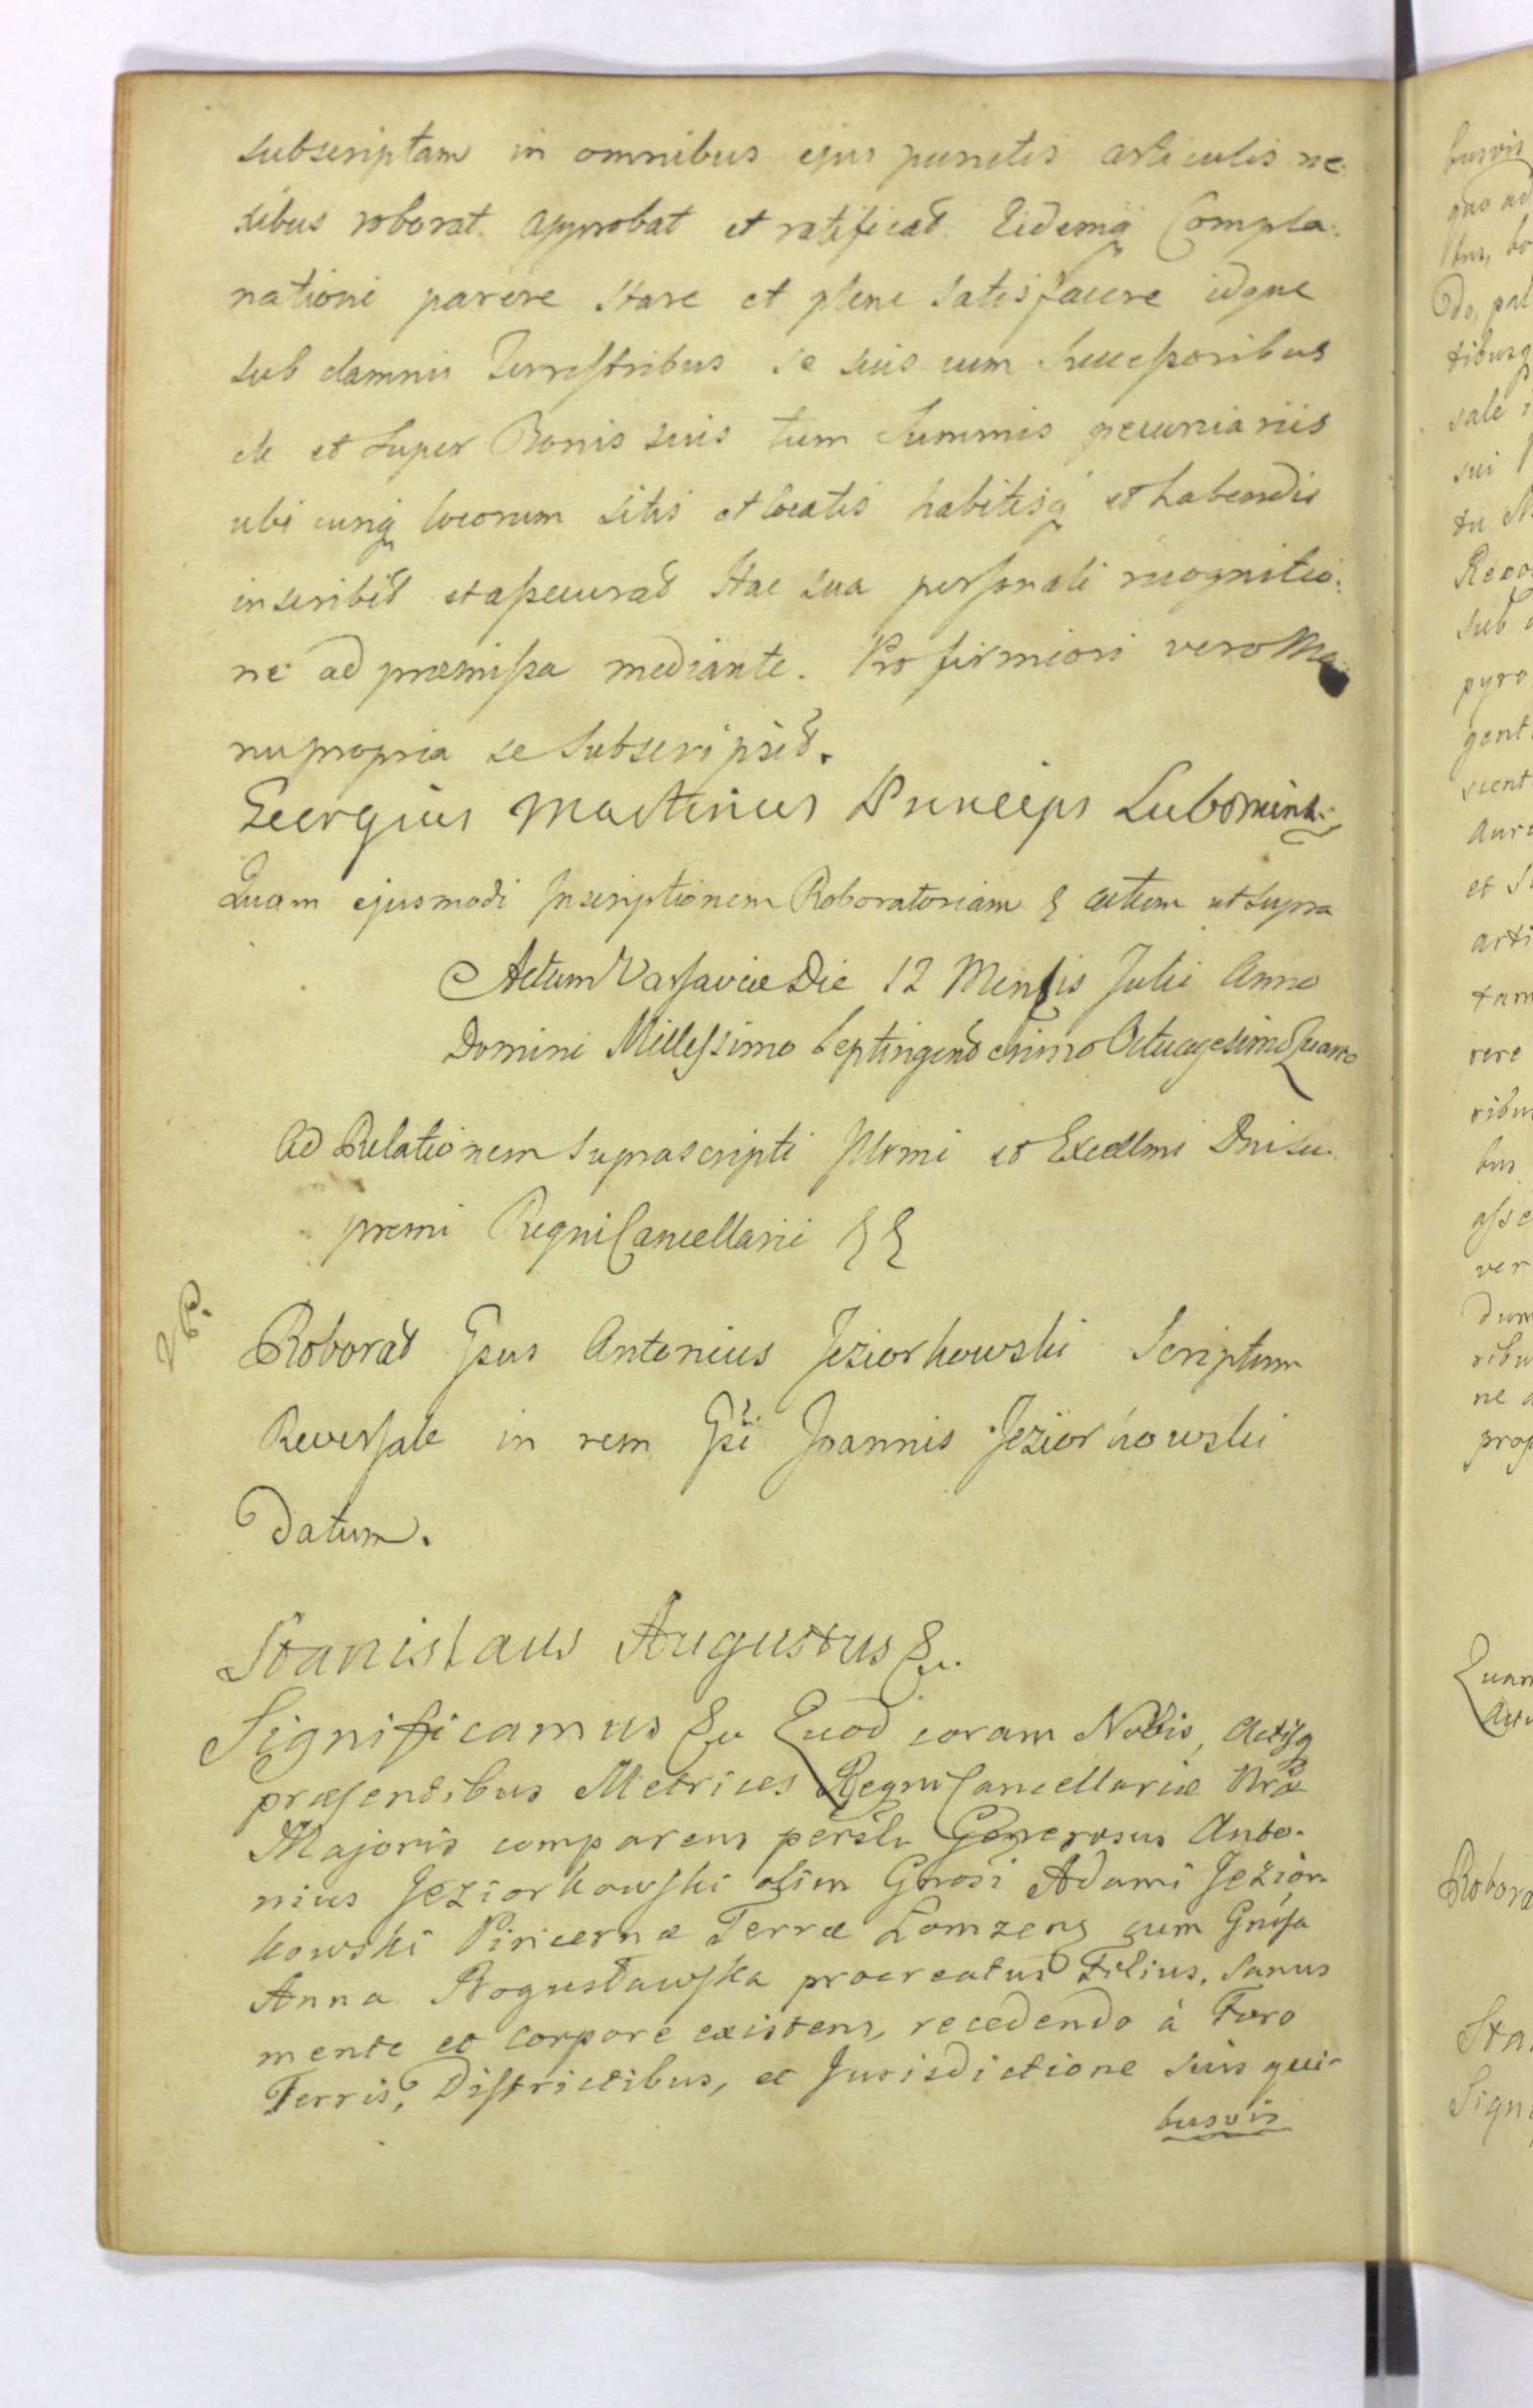 subscriptam in omnibus ejus punctis articulis ne:
xibus roborat approbat et ratificat. Eidemq Compla:
nationi parere stare et plene satisfacere idque
sub damnis Terrestribus se suis cum Successoribus
et super Bonis suis tum Summis pecuniariis
ubi cunq locorum sitis et locatis habitisq et habendis
inscribit et assecurat Hac sua personali recognitio:
ne ad præmissa mediante. Pro firmiori vero Ma
nu propria se Subscripsit.
Georgius Martinus Princeps Lubomirs:
Quam ejusmodi Inscriptionem Roboratoriam & actum ut supra
Actum Varsaviæ Die 12 Mensis Julii Anno
Domini Millessimo Septingentesimo Octuagesimo Quarto
Ad Relationem suprascripti Illrmi et Excellmi Dni Su:
premi Regni Cancellarii & &
Roborat Gsus Antonius Jeziorkowski Scriptum
Reversale in rem Gsi Joannis Jeziorkowski
Datum.
Stanislaus Augustus &c.
Significamus &c Quod coram Nobis, Actisq
præsentibus Metrices Regni Cancellariæ Nræ
Majoris comparens persl. Generosus Anto-
nius Jeziorkowski olim Gnosi Adami Jezior-
kowski Pincernæ Terræ Lomzens cum Gnosa
Anna Bogusławska procreatus Filius, Sanus
mente et corpore existens, recedendo à Foro
Terris, Districtibus, et Jurisdictione suis qui-
busvis